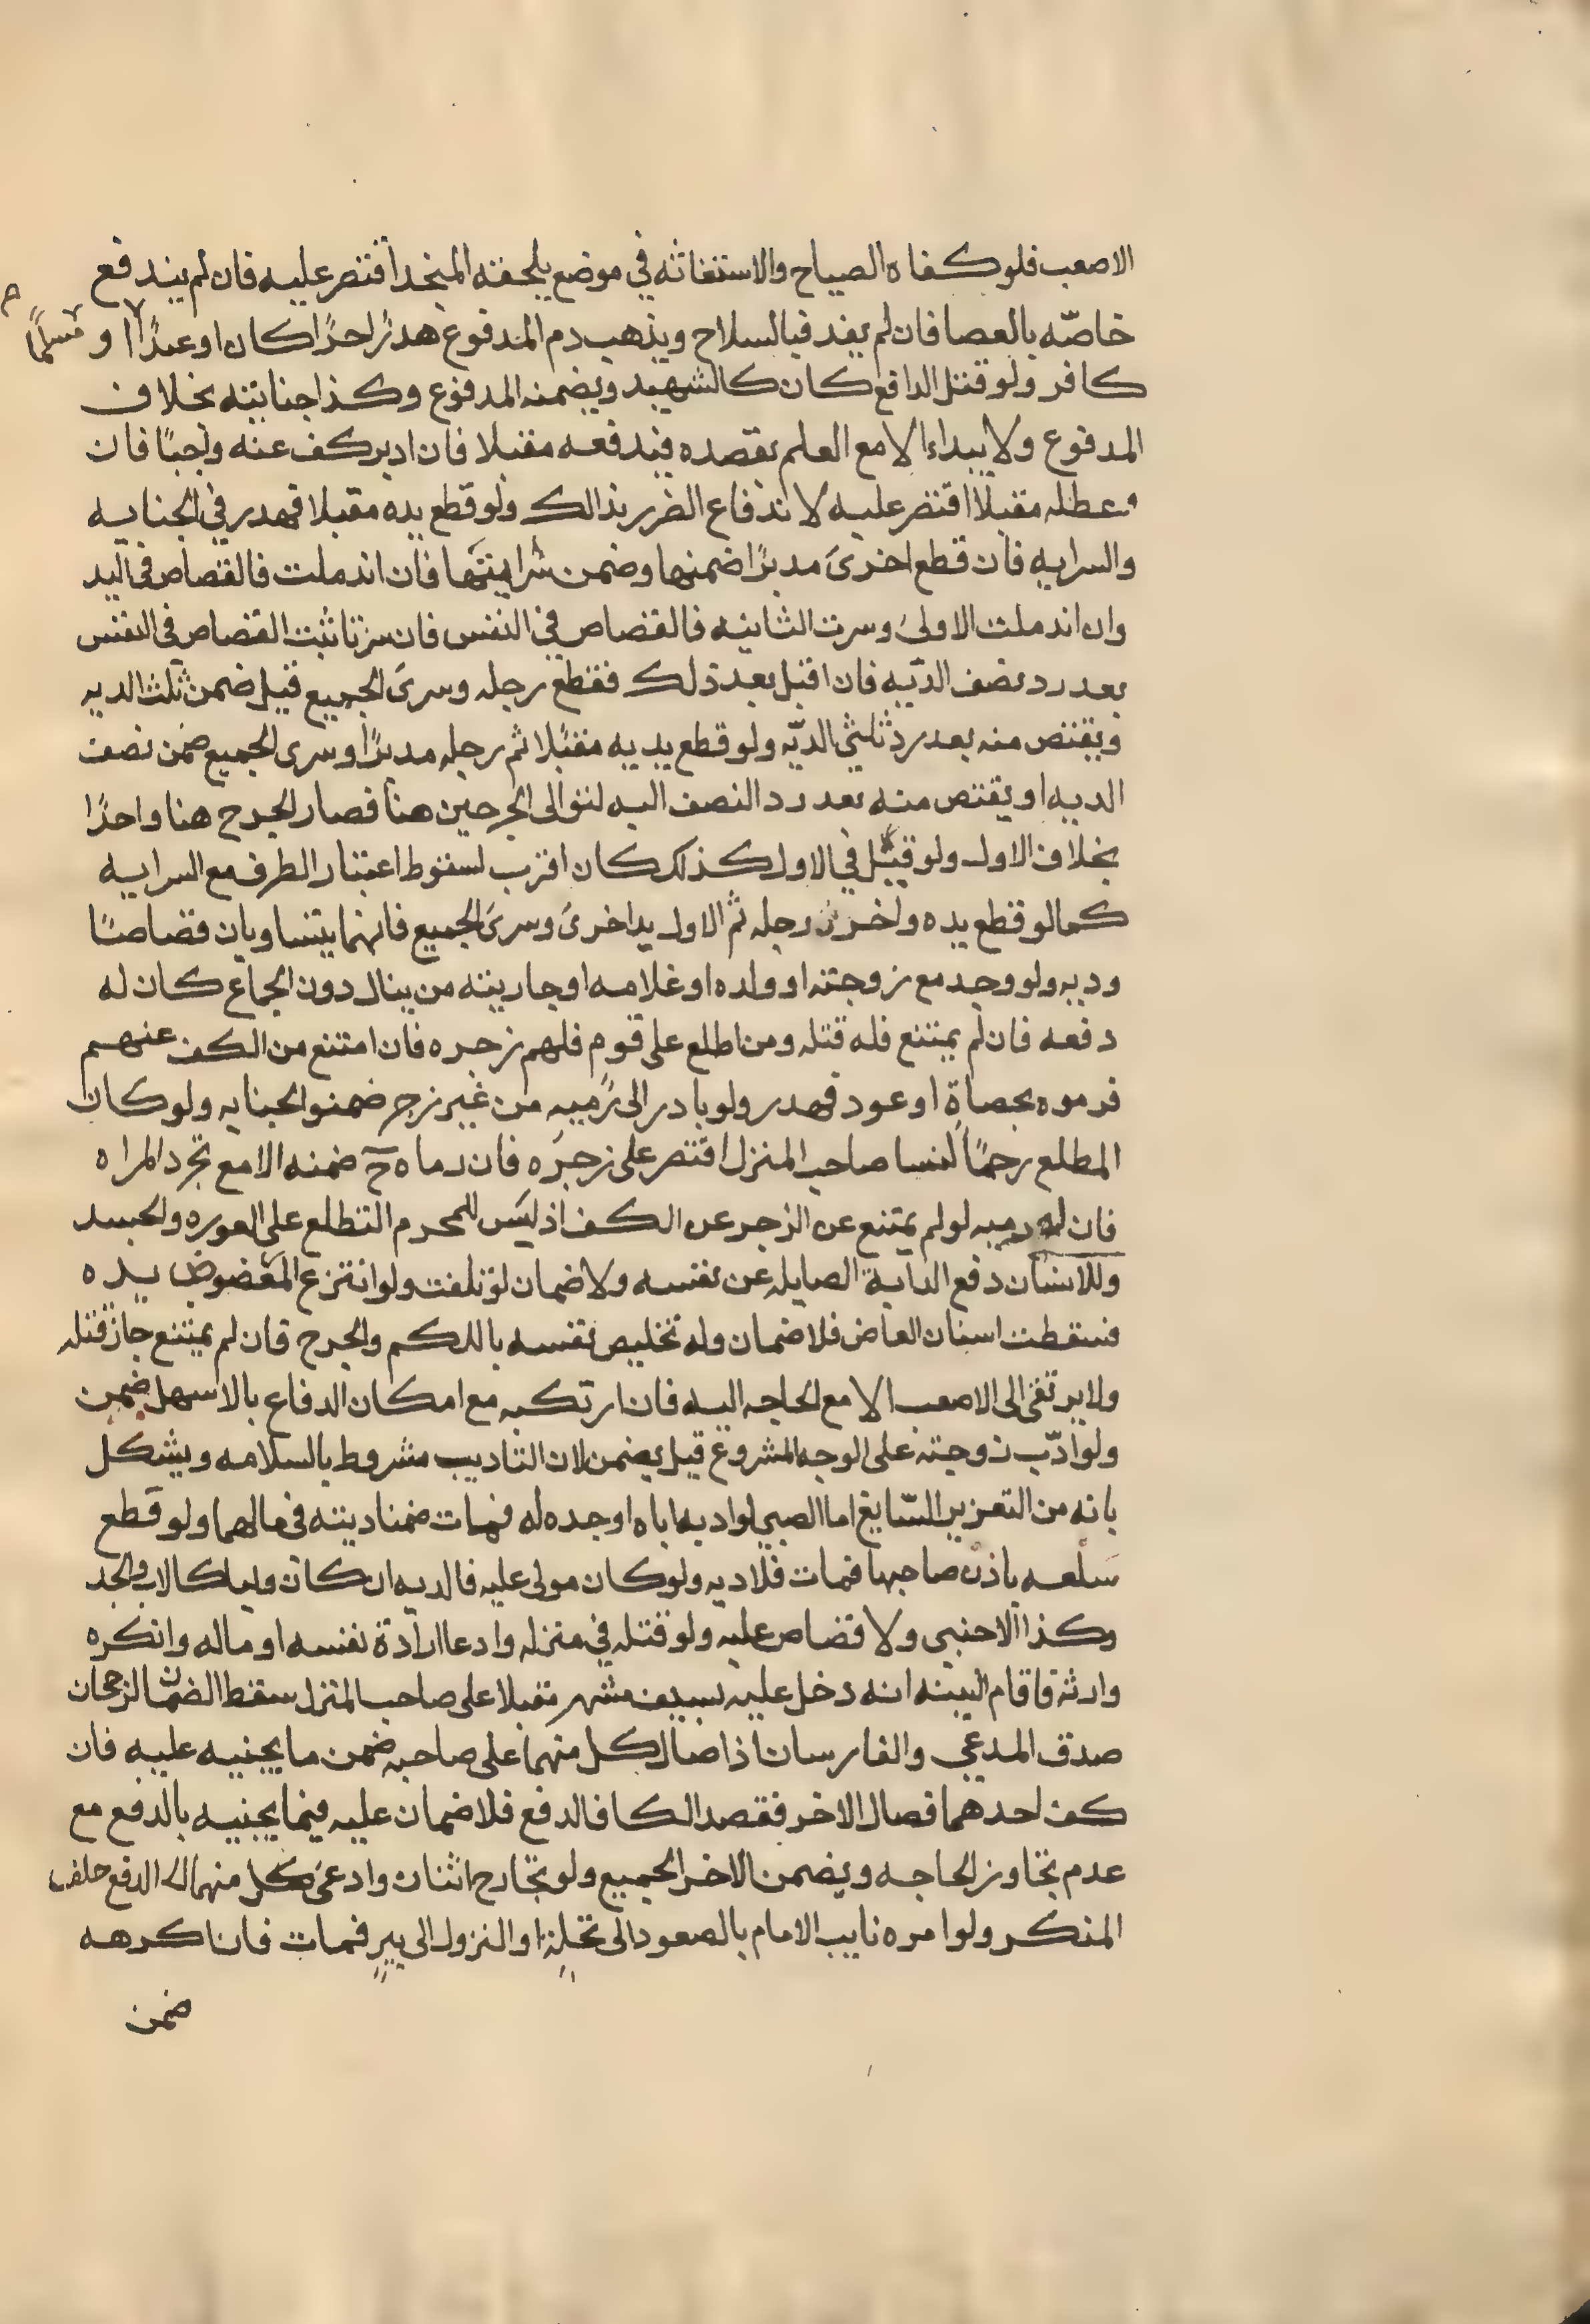 الاصعب فلو كفاه الصياح والاستغاثه في موضع يلحقه المنجد اقتصر عليه فان لم يندفع
خاصّه بالعصا فان لم يفد فبالسلاح ويذهب دم المدفوع هدرًا حرًا كان او عبدًا او مسلمًا
كافر ولو قتل الدافع كان كالشهيد ويضمنه المدفوع وكذا جنايته بخلاف
المدفوع ولا يبداء الا مع العلم بقصده فيدفعه مقبلا فان ادبر كف عنه واجبًا فان
عطله مقبلا اقتصر عليه لاندفاع الضرر بذالك ولو قطع يده مقبلا فهدر في الجنايه
والسرايه فان قطع اخرى مدبرًا ضمنها وضمن سرايتها فان اندملت فالقصاص في اليد
وان اندملت الاولى وسرت الثانيه فالقصاص في النفس فان سرتا ثبت القصاص في النفس
بعد رد نصف الديّه فان اقبل بعد ذلك فقطع رجله وسرى الجميع قيل ضمن ثلث الديه
ويقتص منه بعد رد ثلثي الديّه ولو قطع يديه مقبلا ثم رجله مدبرًا وسرى الجميع ضمن نصف
الديه او يقتص منه بعد رد النصف اليه لتوالى الجرحين هنا فصار الجرح هنا واحدًا
بخلاف الاول ولو قيل في الاول كذلك كان اقرب لسقوط اعتبار الطرف مع السرايه
كما لو قطع يده واخر رجله ثم الاول يدا اخرى وسرى الجميع فانهما يتساويان قصاصًا
وديه ولو وجد مع زوجته او ولده او غلامه او جاريته من ينال دون الجماع كان له
دفعه فان لم يمتنع فله قتله ومن اطلع على قوم فلهم زجره فان امتنع من الكف عنهم
فرموه بحصاةٍ او عود فهدر ولو بادر الى رميه من غير زجر ضمنو الجنايه ولو كان
المطلع رحمًا لنسا صاحب المنزل اقتصر على زجره فان رماه ح ضمنه الا مع تجرد المراه
فان له رميه لو لم يمتنع عن الزجر عن الكف اذ ليس للمحرم التطلع على العوره والجسد
وللانسان دفع الدابة الصايله عن نفسه ولا ضمان لو تلفت ولو انتزع المعضوض يده
فسقطت اسنان العاض فلا ضمان وله تخليص نفسه باللكم والجرح فان لم يمتنع جاز قتله
ولا يرتقى الى الاصعب الا مع الحاجه اليه فان ارتكبه مع امكان الدفاع بالاسهل ضمن
ولو ادّب زوجته على الوجه المشروع قيل يضمن لان التاديب مشروط بالسلامه ويشكل
بانه من التعزير السّايغ اما الصبي لو ادبه اباه او جده له فمات ضمنا ديته في مالهما ولو قطع
سلعه باذن صاحبها فمات فلا ديه ولو كان مولى عليه فالديه ان كان وليا كالاب والجد
وكذا الاجنبي ولا قصاص عليه ولو قتله في منزله وادعا ارادة نفسه او ماله وانكره
وارثه فاقام البينه انه دخل عليه بسيف مشهر مقبلا على صاحب المنزل سقط الضمان لرجحان
صدق المدعي والفارسان اذا صال كل منهما على صاحبه ضمن ما يجنيه عليه فان
كف احدهما فصال الاخر فقصد الكاف الدفع فلا ضمان عليه فيما يجنيه بالدفع مع
عدم تجاوز الحاجه ويضمن الاخر الجميع ولو تجارح اثنان وادعى كل منهما الدفع حلف
المنكر ولو امره نايب الامام بالصعود الى نخلةٍ او النزول الى بيرٍ فمات فان اكرهه
ضمن